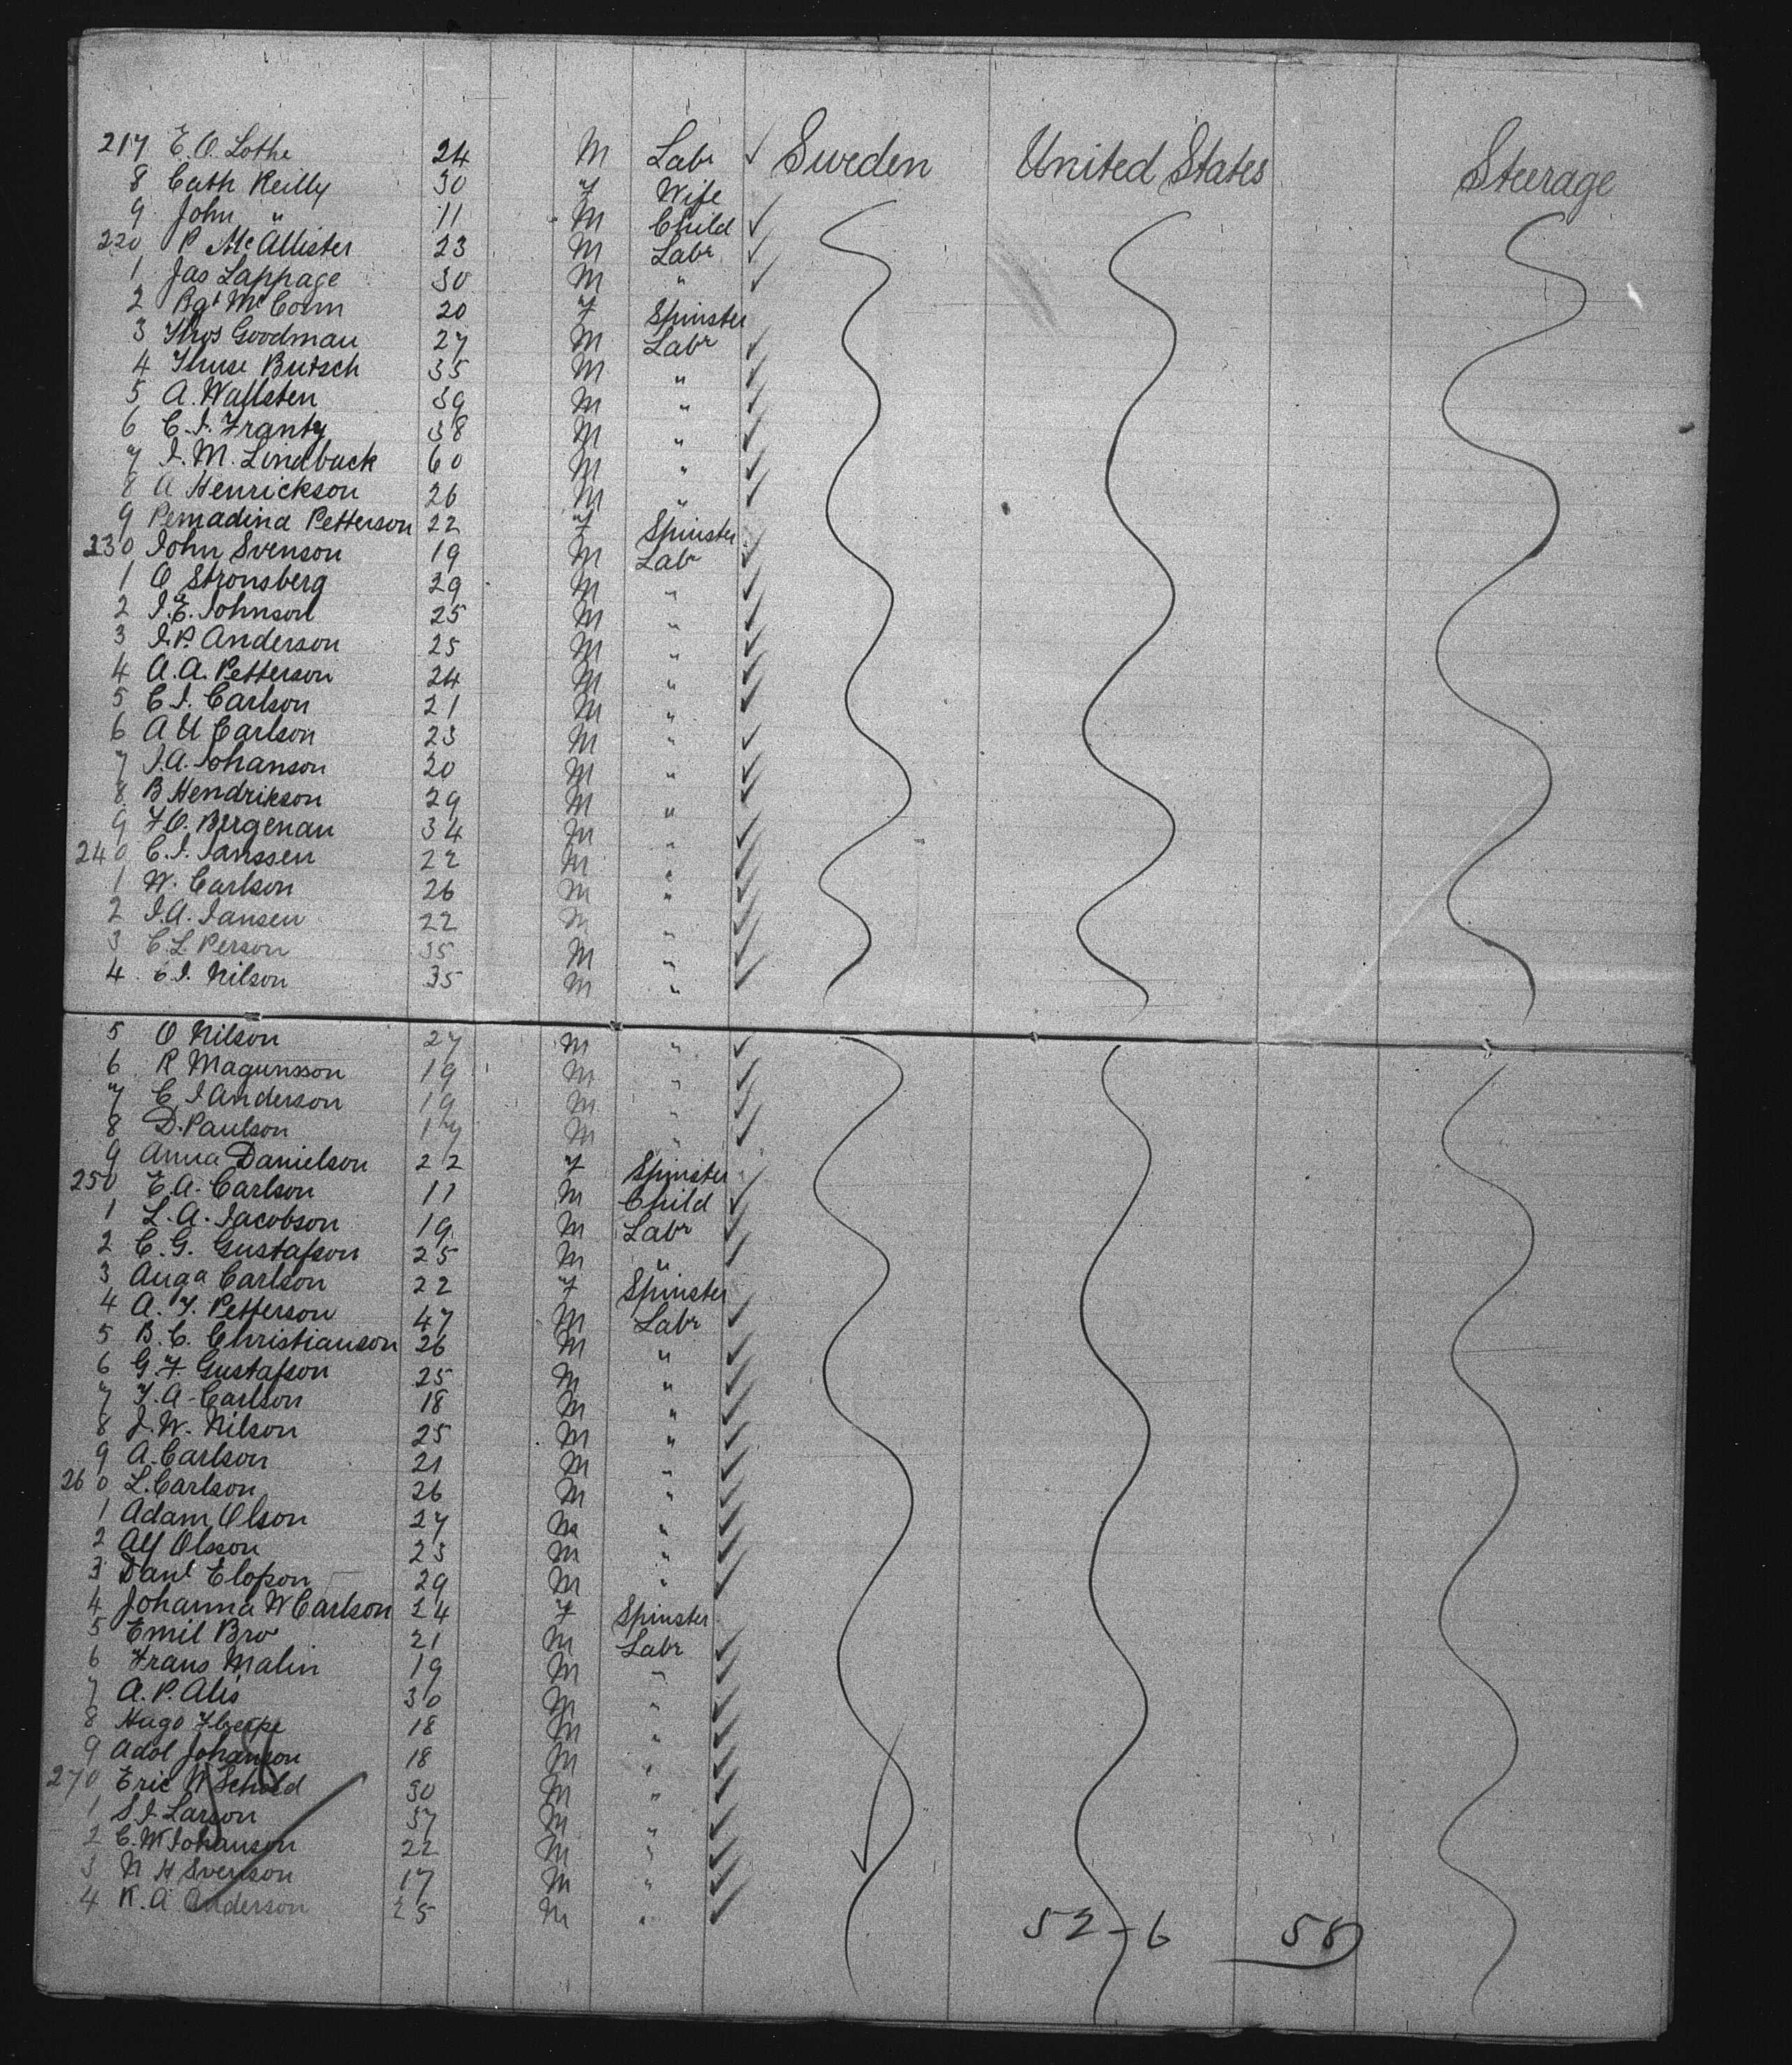 217 E. O. Lothe 24 M Labr ✓ Sweden United States Steerage
8 Cath Reilly 30 f Wife
9 John " 11 M Child ✓
220 P McAllister 23 M Labr ✓
1 Jas Lappage 30 M " ✓
2 Bgt McCorm 20 f Spinster
3 Thos Goodman 27 M Labr ✓
4 Butsch 35 M " ✓
5 A. Wallsten 39 M " ✓
6 C. I. Frantz 38 M " ✓
7 I. M. Lindback 60 M " ✓
8 A Henrickson 26 M " ✓
9 Pemadina Petterson 22 f Spinster
230 John Svenson 19 M Labr ✓
1 O Stronsberg 29 M " ✓
2 I. E. Johnson 25 M " ✓
3 I. P. Anderson 25 M " ✓
4 A. A. Petterson 24 M " ✓
5 C. I. Carlson 21 M " ✓
6 A U Carlson 23 M " ✓
7 J. A. Johanson 20 M " ✓
8 B Hendrikson 29 M " ✓
9 F O. Bergenau 34 M " ✓
240 C. I. Janssen 22 M " ✓
1 W. Carlson 26 M " ✓
2 I. A. Jansen 22 M " ✓
3 C. L. Person 35 M " ✓
4 C I. Nilson 35 M " ✓
5 O Nilson 27 M " ✓
6 R Magunsson 19 M " ✓
7 C I Anderson 19 M " ✓
8 D. Paulson 17 M " ✓
9 Anna Danielson 22 f Spinster
250 E. A. Carlson 11 M Child ✓
1 L. A. Jacobson 19 M Labr ✓
2 C. G. Gustafson 25 M " ✓
3 Auga Carlson 22 f Spinster
4 A. F. Petterson 47 M Labr ✓
5 B. C. Christianson 26 M " ✓
6 G. F. Gustafson 25 M " ✓
7 F. A. Carlson 18 M " ✓
8 J. W. Nilson 25 M " ✓
9 A. Carlson 21 M " ✓
260 L. Carlson 26 M " ✓
1 Adam Olson 27 M " ✓
2 Alf Olsson 23 M " ✓
3 Danl Elofson 29 M " ✓
4 Johanna W Carlson 24 f Spinster
5 Emil Bro 21 M Labr ✓
6 Frans Malin 19 M " ✓
7 A. P. Alis 30 M " ✓
8 Hugo 18 M " ✓
9 Adol Johanson 18 M " ✓
270 Eric N Schold 30 M " ✓
1 S. I. Larson 37 M " ✓
2 C. W Johanson 22 M " ✓
3 N H Svenson 17 M " ✓
4 K. A Anderson 25 M " ✓
52-6 58